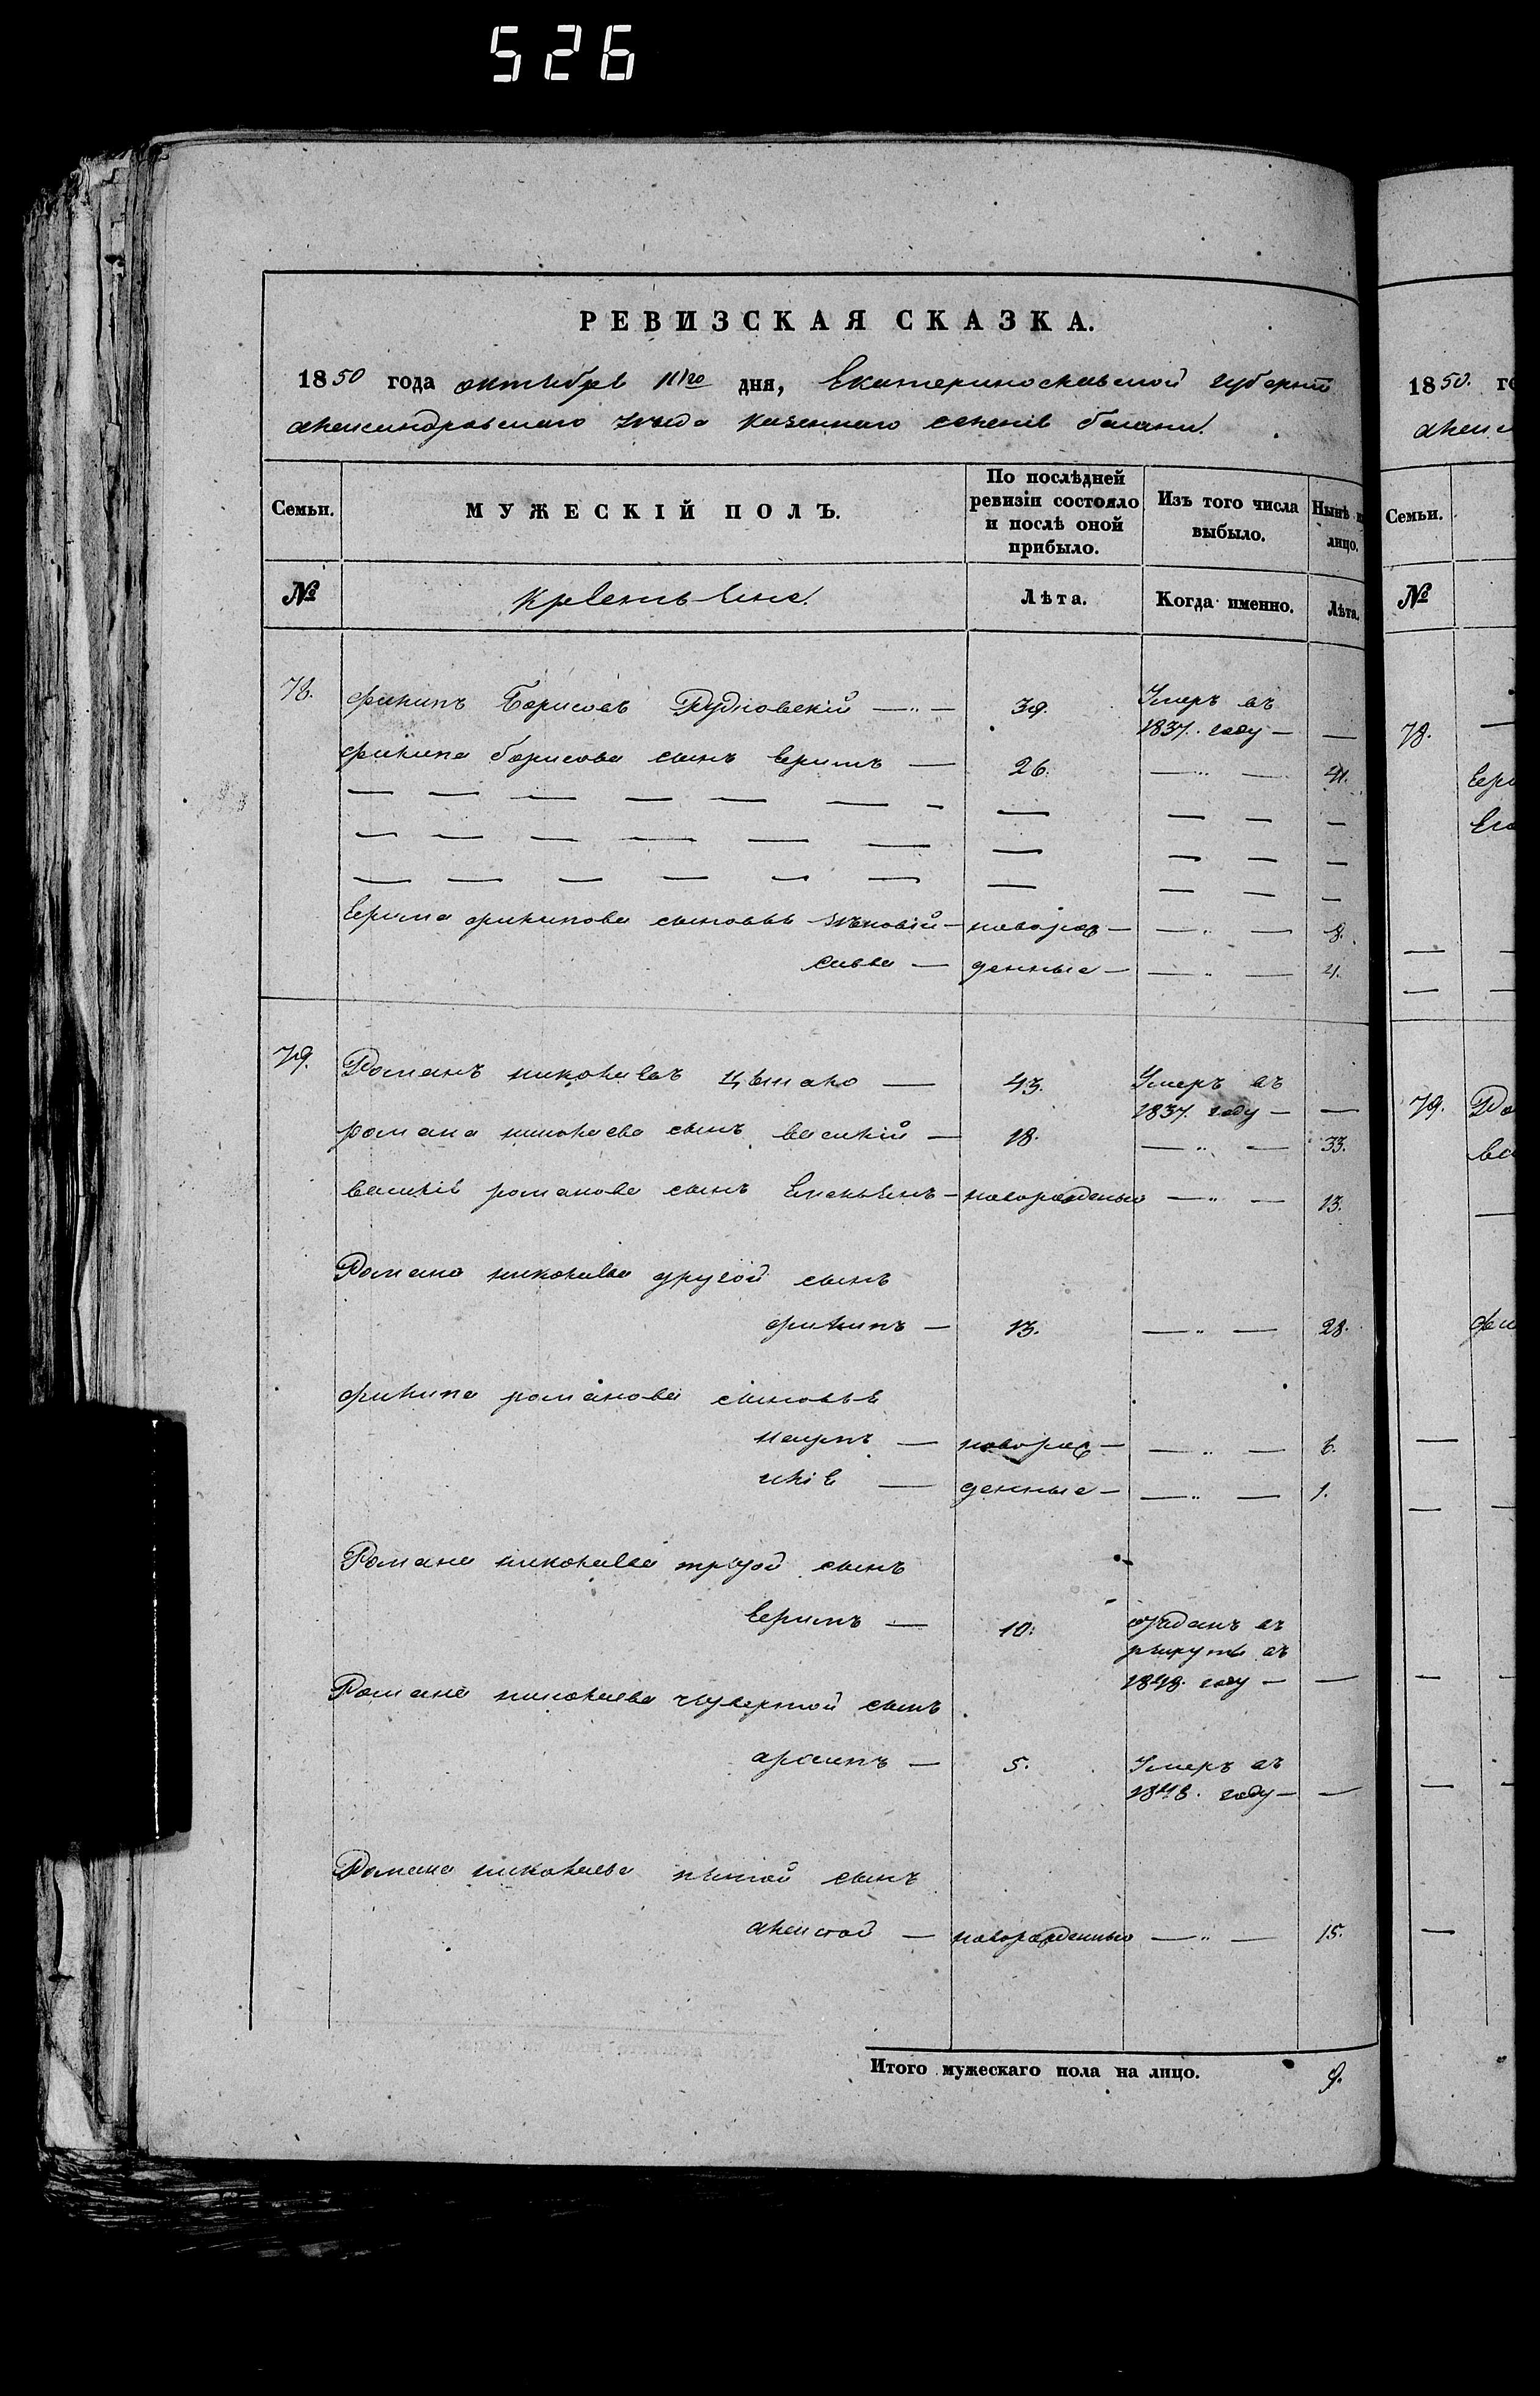 526
РЕВИЗСКАЯ СКАЗКА.
1850 года октября 11го дня, Екатеринославской губерніи
александровскаго уѣзда казеннаго селенія балани.
Семьи.
МУЖЕСКІЙ ПОЛЪ.
По послѣдней ревизіи состояло и послѣ оной прибыло.
Изъ того числа выбыло.
Нынѣ
лицо.
№
крестьяне.
Лѣта.
Когда именно.
Лѣта.
78. филипъ Борисовъ Рудковскій — 39. Умеръ въ
1837. году — —
филипа борисова сынъ ефимъ — 26. — " — 41.
Ефима филипова сыновья — новорож— — " — 8.
сава — денные — — " — 4.
79. Романъ николаевъ — 43. Умеръ въ
1837. году — —
романа николаева сынъ василій — 18. — " — 33.
василія романова сынъ Емельянъ — новорожденый — " — 13.
Романа николаева другой сынъ
филипъ — 13. — " — 28.
филипа романова сыновья
карпъ — новорож— — " — 6.
илія — денные — — " — 1.
Романа николаева третой сынъ
Ефимъ — 10. отданъ въ
рекруты въ
1848. году — —
Романа николаева четвертой сынъ
архипъ — 5. Умеръ въ
1848. году — —
Романа николаева пятой сынъ
алексей — новорожденный — " — 15.
Итого мужескаго пола на лицо. 9.
1850. го
Семьи.
№
78.
79. Ро